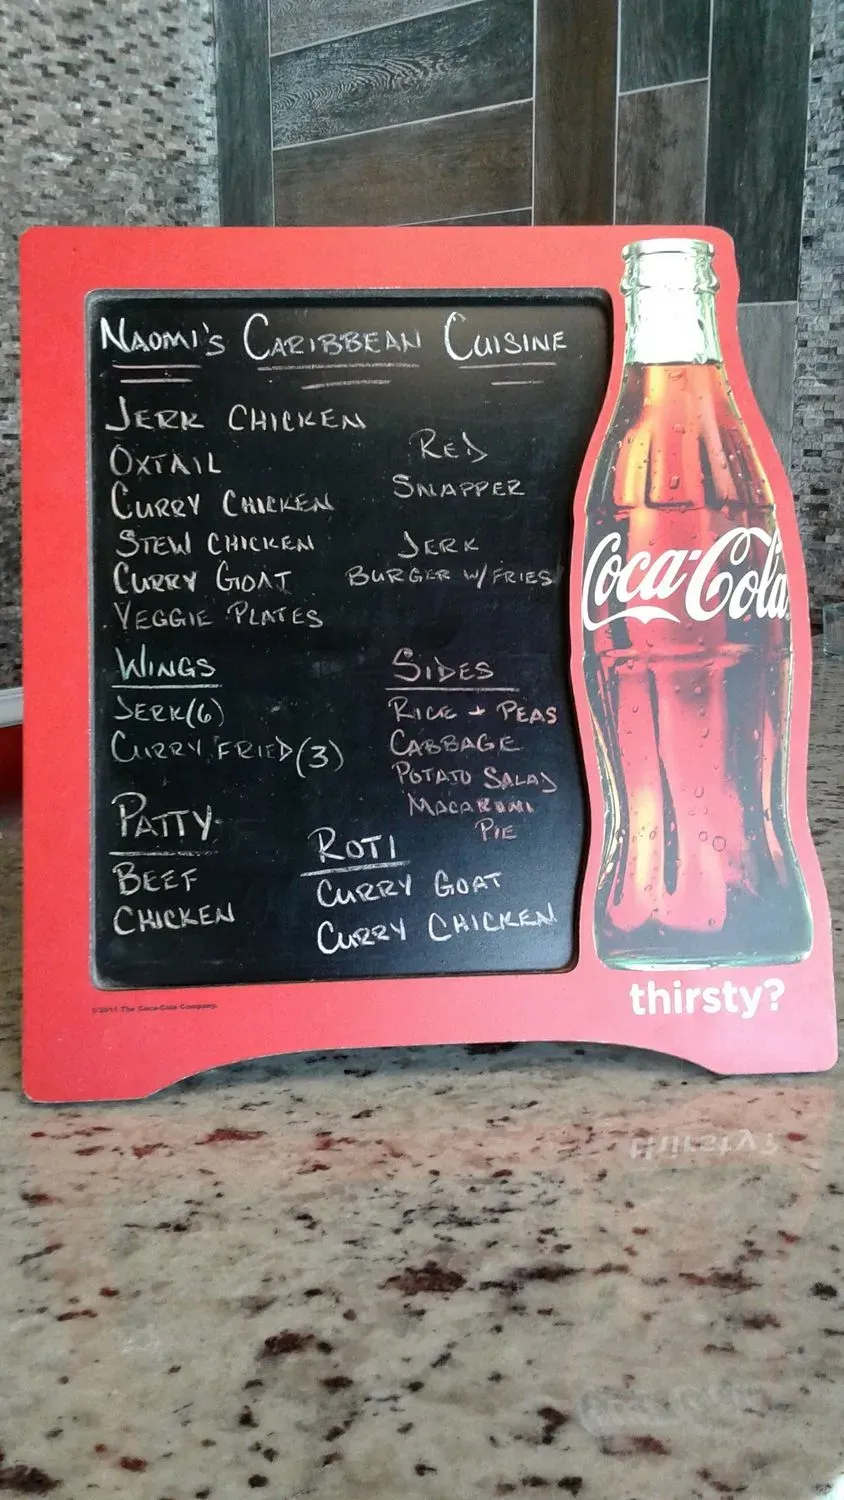 NAOMI'S CARIBBEAN CUISINE
JERK CHICKEN
OXTAIL
CURRY CHICKEN
STEW CHICKEN
CURRY GOAT
VEGGIE PLATES
RED
SNAPPER
JERK
BURGER W/FRIES
WINGS
JERK(6)
CURRY FRIED(3)
SIDES
RICE + PEAS
CABBAGE
POTATO SALAD
MACARONI
PIE
PATTY
BEEF
CHICKEN
ROTI
CURRY GOAT
CURRY CHICKEN
Coca-Cola
thirsty?
©2011 The Coca-Cola Company.